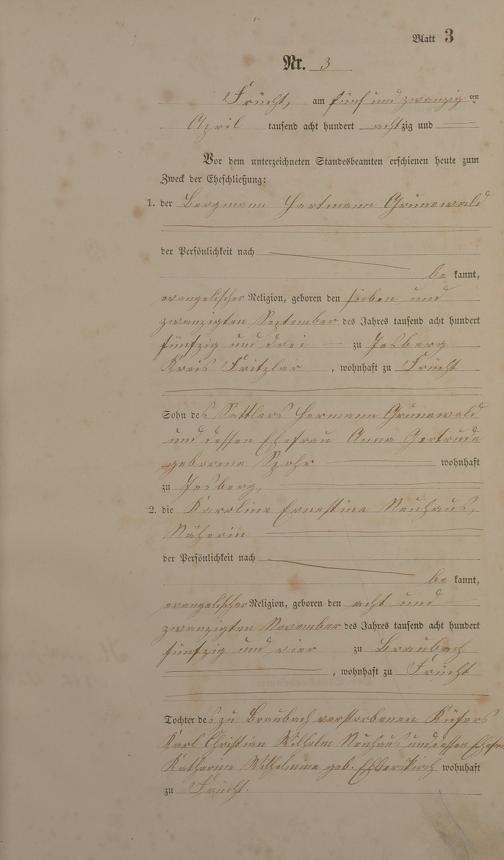 Blatt 3
Nr. 3
Frücht, am fünf und zwanzig ten
April tausend acht hundert achtzig und
Vor dem unterzeichneten Standesbeamten erschienen heute zum
Zweck der Eheschließung:
1. der Bergmann Hartmann Grünewald
der Persönlichkeit nach
bekannt,
evangelischer Religion, geboren den sieben und
zwanzigten September des Jahres tausend acht hundert
fünfzig und drei zu Jesberg
Kreis Fritzlar, wohnhaft zu Frücht
Sohn des Sattlers Hermann Grünewald
und dessen Ehefrau Anna Gertrude
geborene wohnhaft
zu Jesberg,
2. die Karoline Ernestine Neuhaus,
Näherin
der Persönlichkeit nach
bekannt,
evangelischer Religion, geboren den acht und
zwanzigten November des Jahres tausend acht hundert
fünfzig und vier zu Braubach
, wohnhaft zu Frücht
Tochter des zu Braubach verstorbenen Küfers
Karl Christian Wilhelm Neuhaus und dessen Ehefrau
Katharine Wilhelmine geb. wohnhaft
zu Frücht.